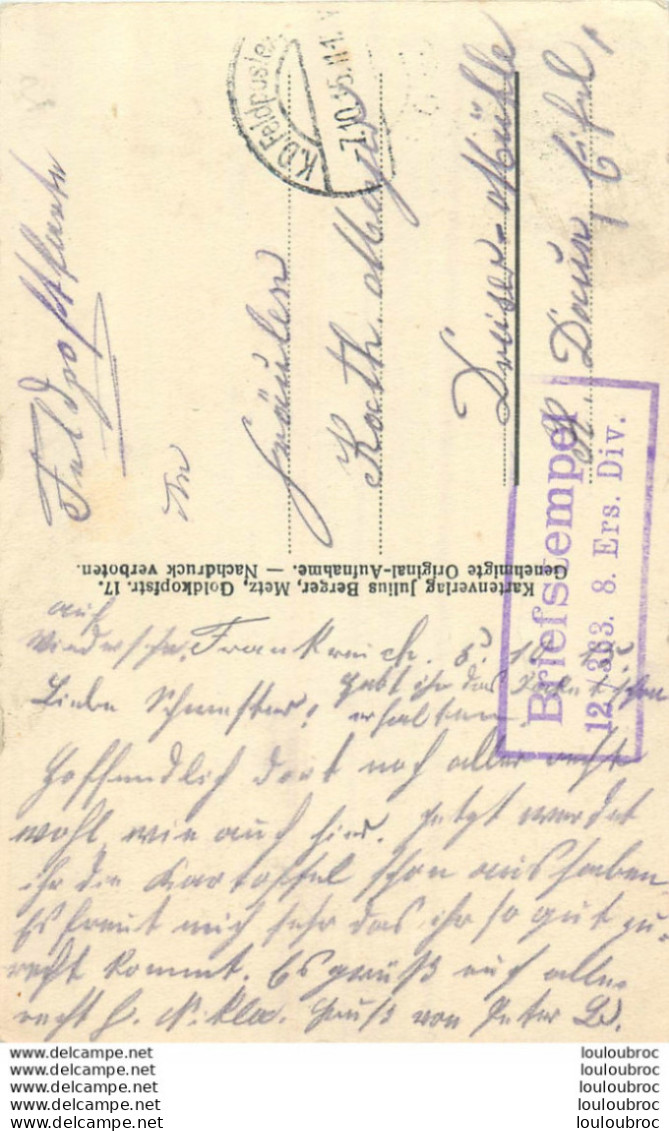 Feldpostkarte
An
Fräulen
Kath
Dreiser-Mühle
Daun, Eifel,
K.D. Feldpost
-7.10.15.
Briefstempel
12./383. 8. Ers. Div.
Kartenverlag Julius Berger, Metz, Goldkopfstr. 17.
Genehmigte Original-Aufnahme. — Nachdruck verboten.
auf
Wiedersehn. Frankreich. 5. 10. 15.
Liebe Schwester! Habt ihr das Paket schon
erhalten.
Hoffendlich dort noch alles recht
wohl, wie auch hier. Jetzt werdet
ihr die Kartoffel schon aus haben
Es freut mich sehr das ihr so gut zu-
recht kommt. Es grüßt euch alle
recht h. Gruß von Peter
www.delcampe.net
www.delcampe.net
www.delcampe.net
www.delcampe.net
www.delcampe.net
louloubroc
louloubroc
louloubroc
louloubroc
louloubroc